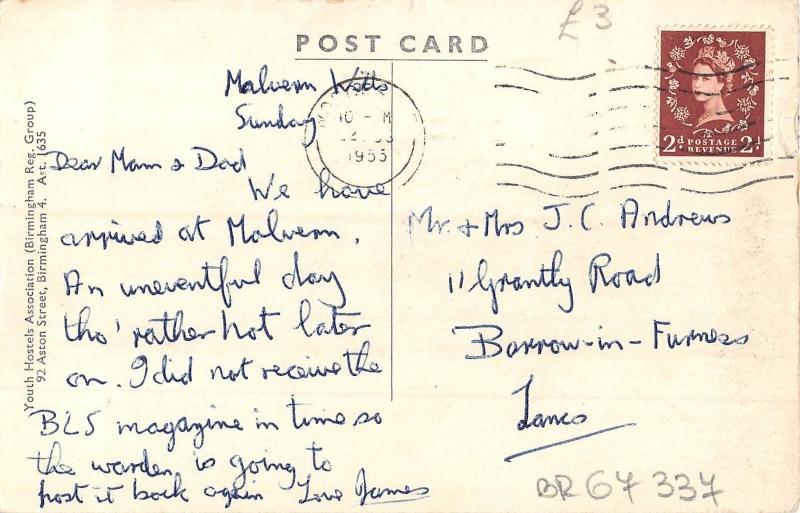 £3
POST CARD
2D POSTAGE REVENUE 2D
10 - M
1955
Youth Hostels Association (Birmingham Reg. Group)
92 Aston Street, Birmingham 4. Ast. 1635
Malvern Wells
Sunday
Dear Mam & Dad
We have
arrived at Malvern.
An uneventful day
tho' rather hot later
on. I did not receive the
BLS magazine in time so
the warden is going to
post it back again Love James
Mr. & Mrs J. C. Andrews
11 Grantly Road
Barrow-in-Furness
Lancs
BR 67 337